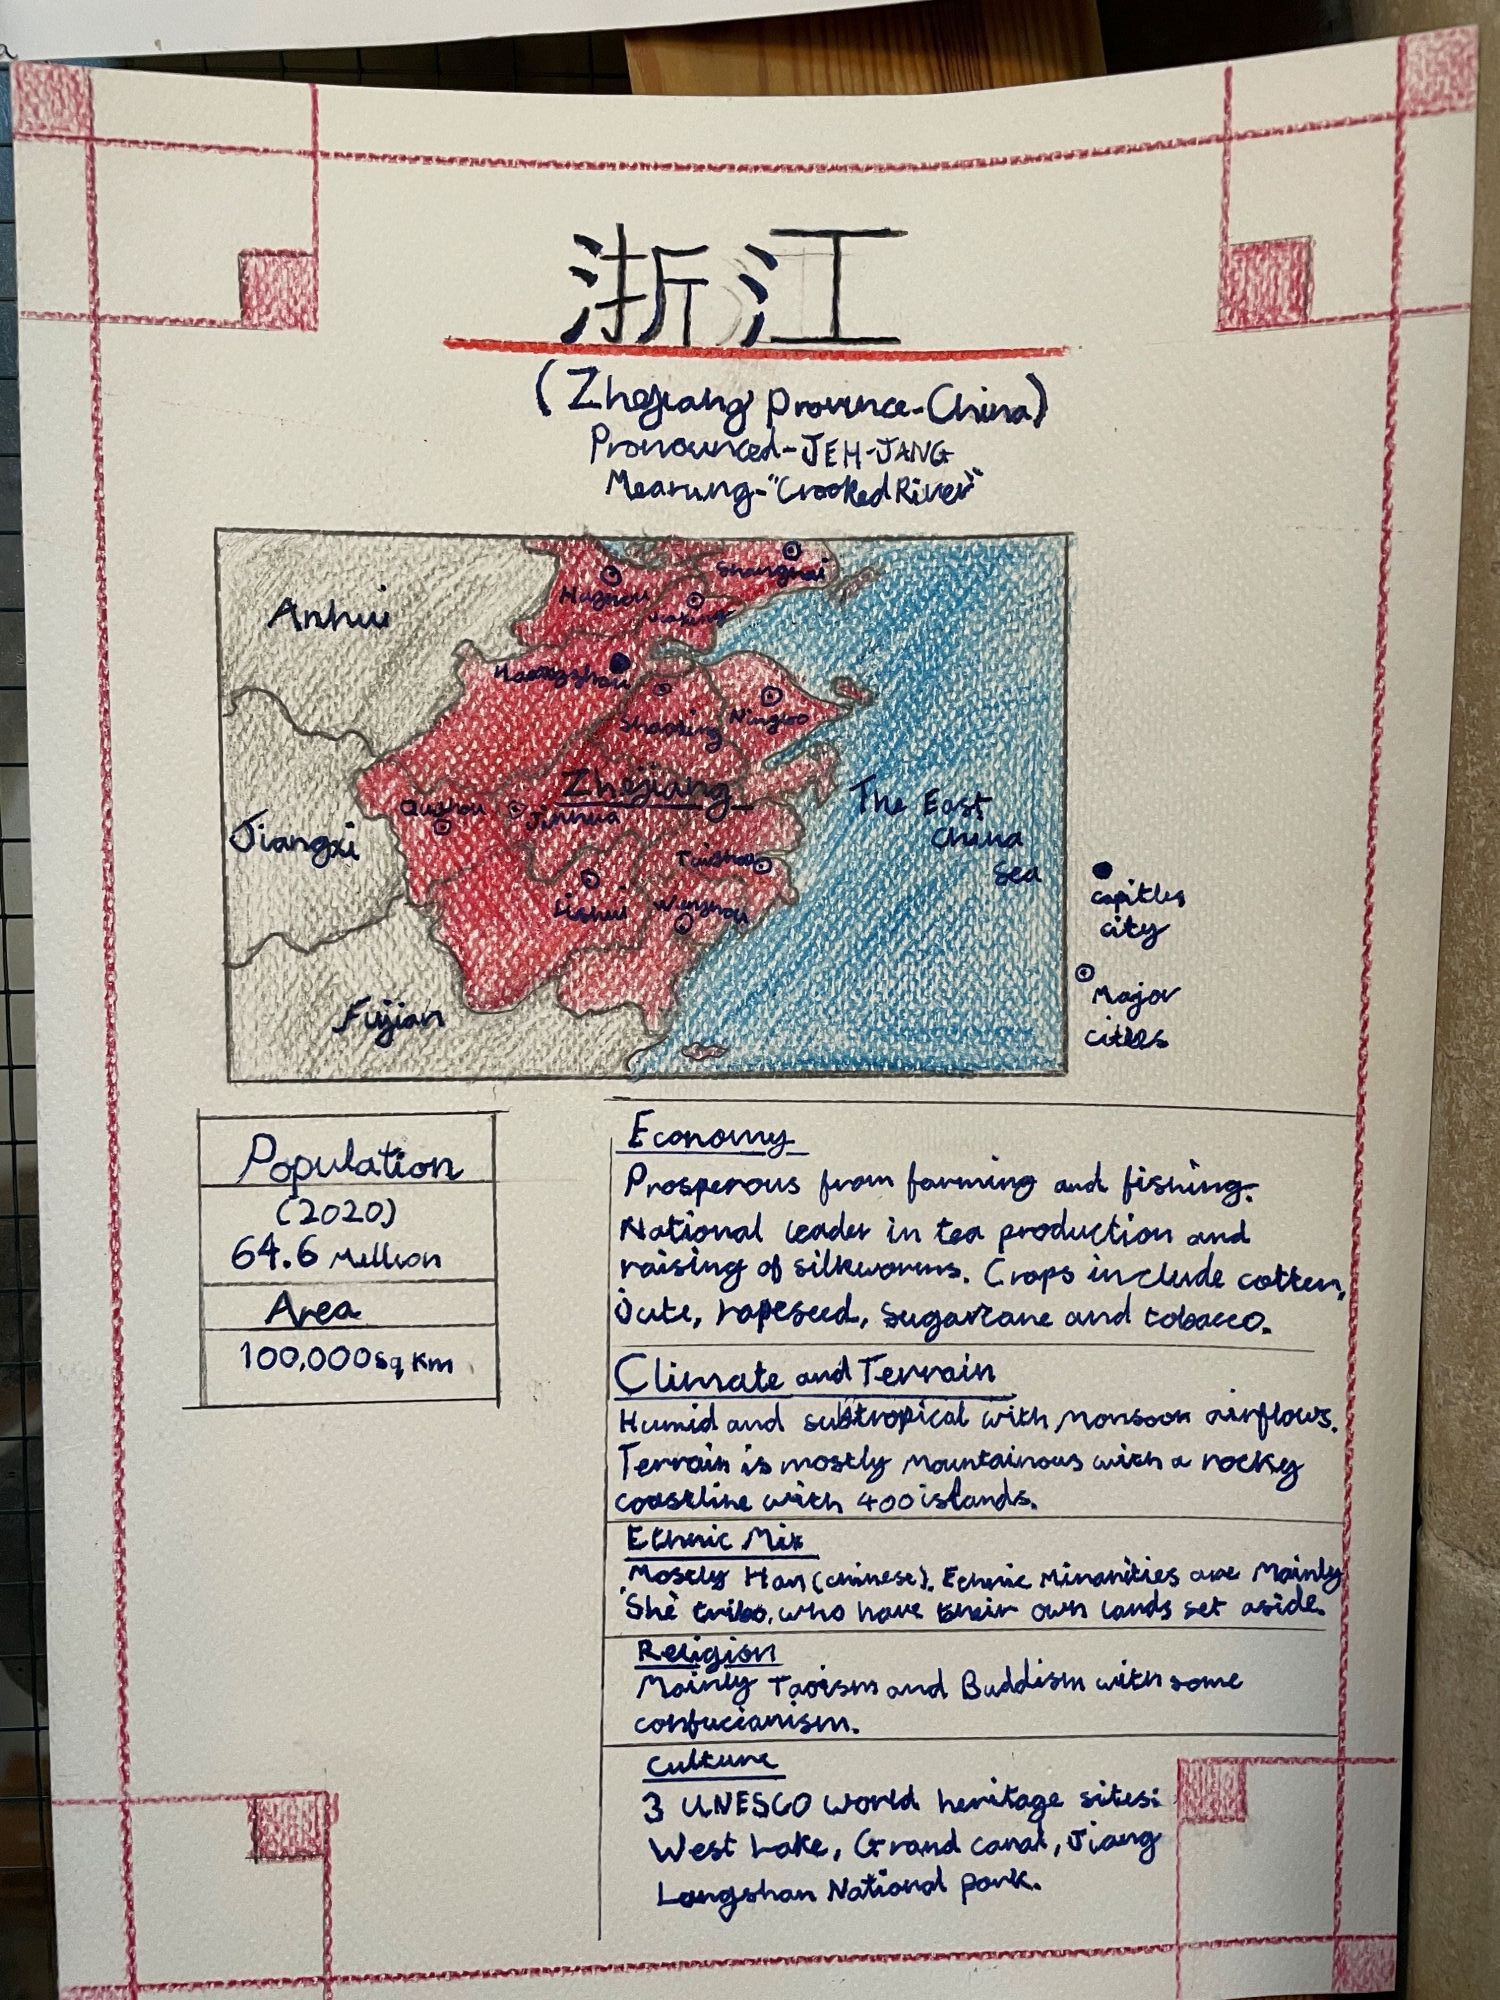 浙江
(Zhejiang Province-China)
Pronounced-JEH-JANG
Meaning-"Crooked River"
Anhui
Shanghai
Jiaxing
Shaoxing
Ningbo
Zhejiang
Quzhou
Jinhua
Jiangxi
The East
China
Sea
Taizhou
Lishui
Wenzhou
Fujian
capitles
city
Major
cities
Population
(2020)
64.6 Million
Area
100,000 sq km
Economy
Prosperous from farming and fishing.
National leader in tea production and
raising of silkworms. Crops include cotten,
Jute, rapeseed, sugarcane and tobacco.
Climate and Terrain
Humid and subtropical with monsoon airflows.
Terrain is mostly mountainous with a rocky
coastline with 400 islands.
Ethnic Mix
Mostly Han (chinese). Ethnic Minanities are Mainly
'She' tribe, who have their own lands set aside.
Religion
Mainly Taoism and Buddism with some
confucianism.
Culture
3 UNESCO World heritage sites:
West Lake, Grand canal, Jiang
Langshan National park.